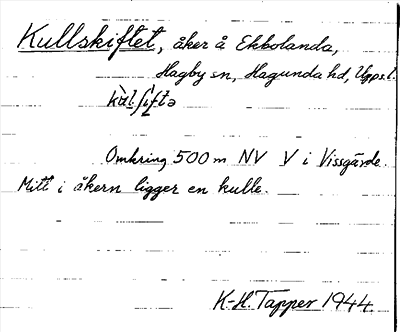 Kullskiftet, åker å Ekbolanda,
Hagby sn, Hagunda hd, Upps.l.
kùlʃìftə
Omkring 500 m NV V i Vissgärde.
Mitt i åkern ligger en kulle.
K-H. Tapper 1944.